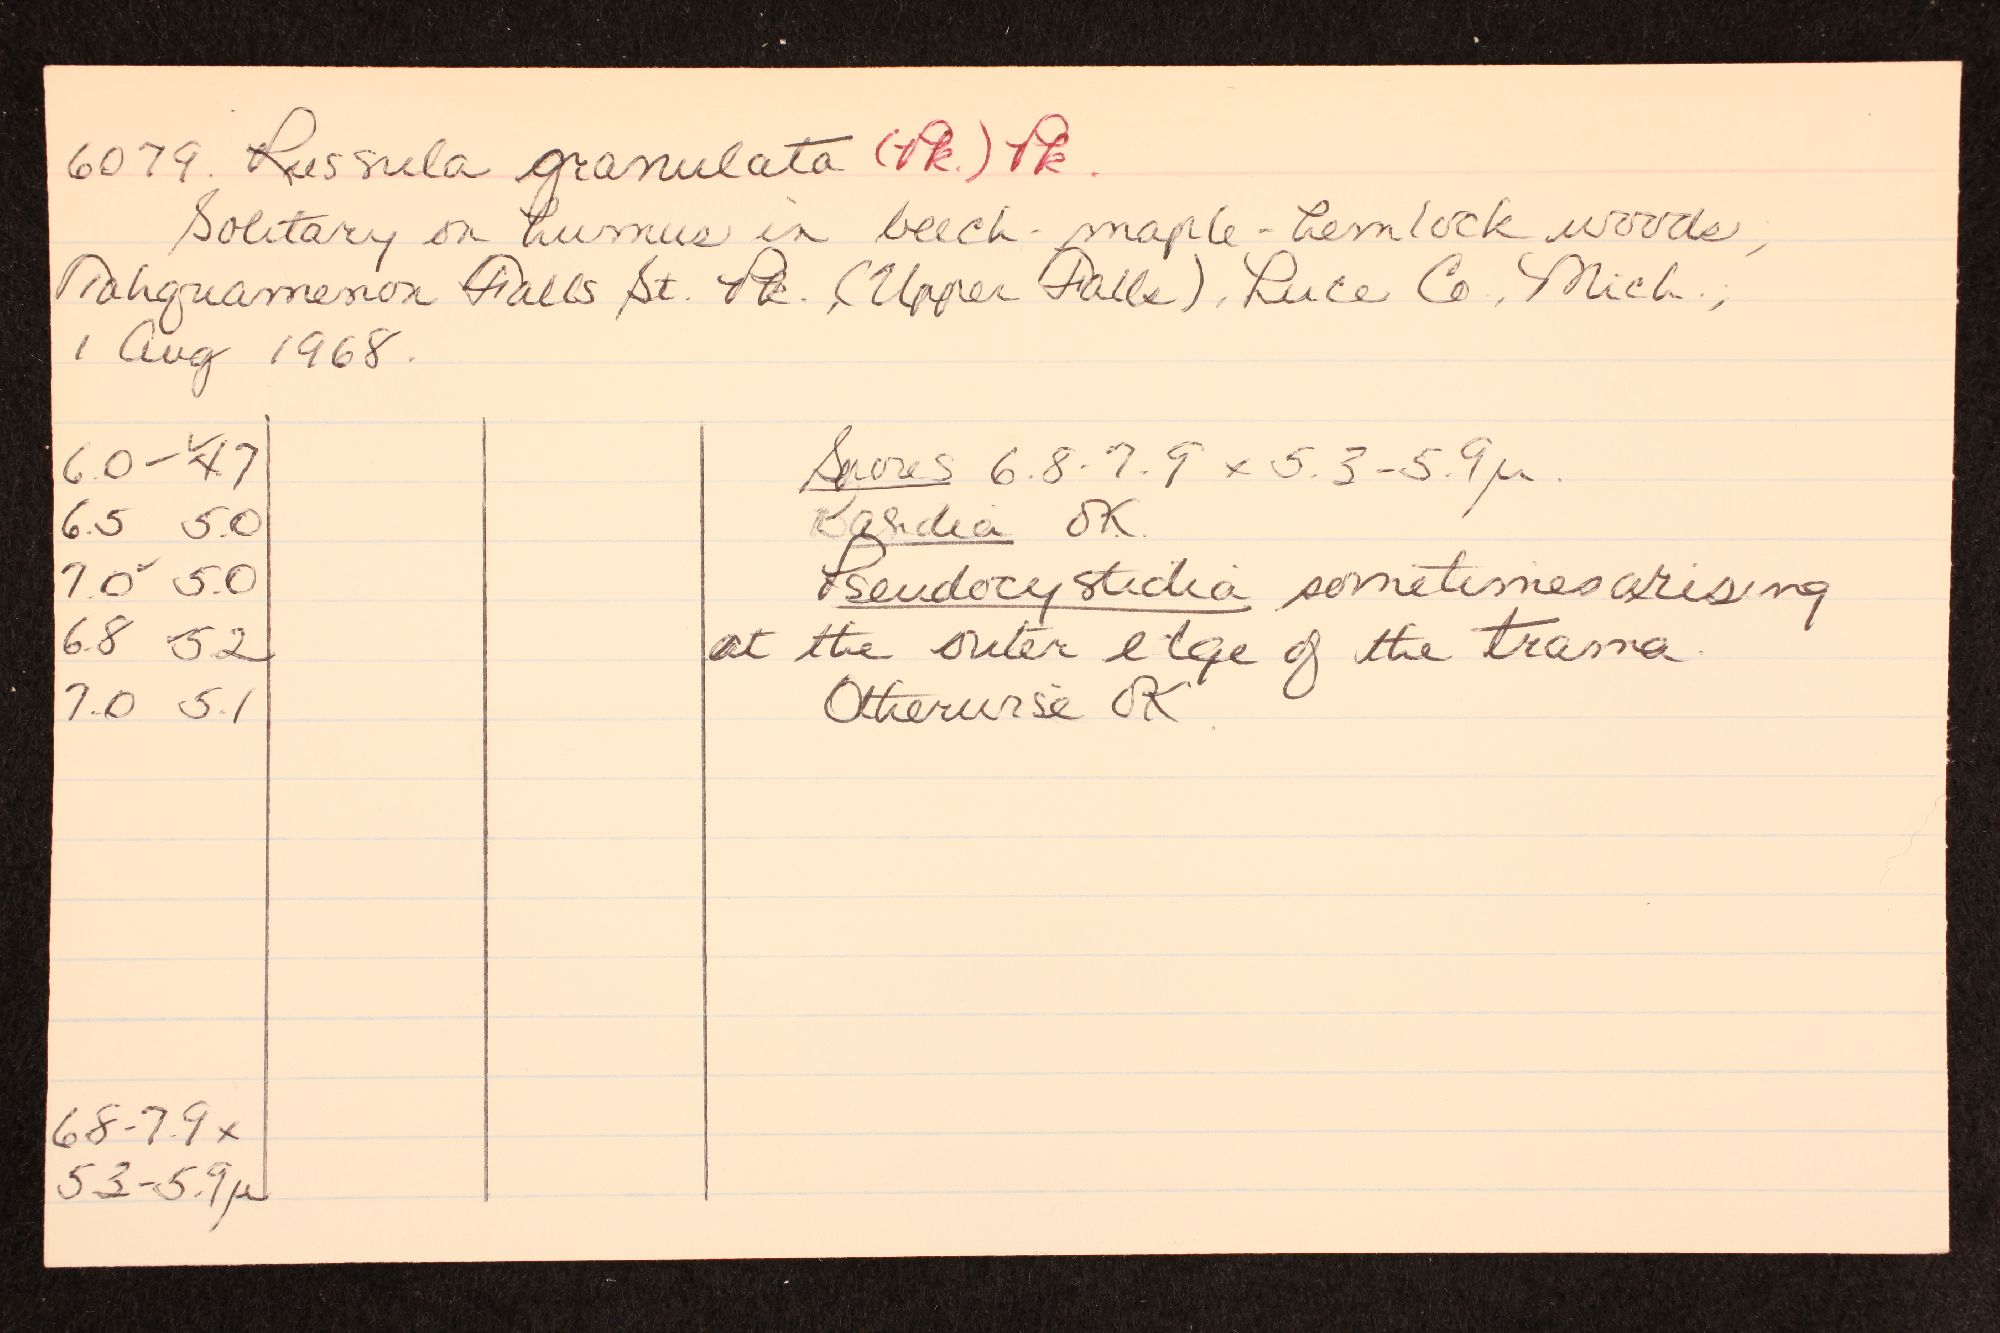 6079. Russula granulata (Pk.) Pk.
Solitary on humus in beech-maple-hemlock woods,
Tahquamenon Falls St. Pk. (Upper Falls), Luce Co., Mich.,
1 Aug 1968.
6.0 - 4.7
6.5 5.0
7.0 5.0
6.8 5.2
7.0 5.1
6.8-7.9 x
5.3-5.9µ
Spores 6.8-7.9 x 5.3-5.9µ.
Basidia OK.
Pseudocystidia sometimes arising
at the outer edge of the trama.
Otherwise OK.